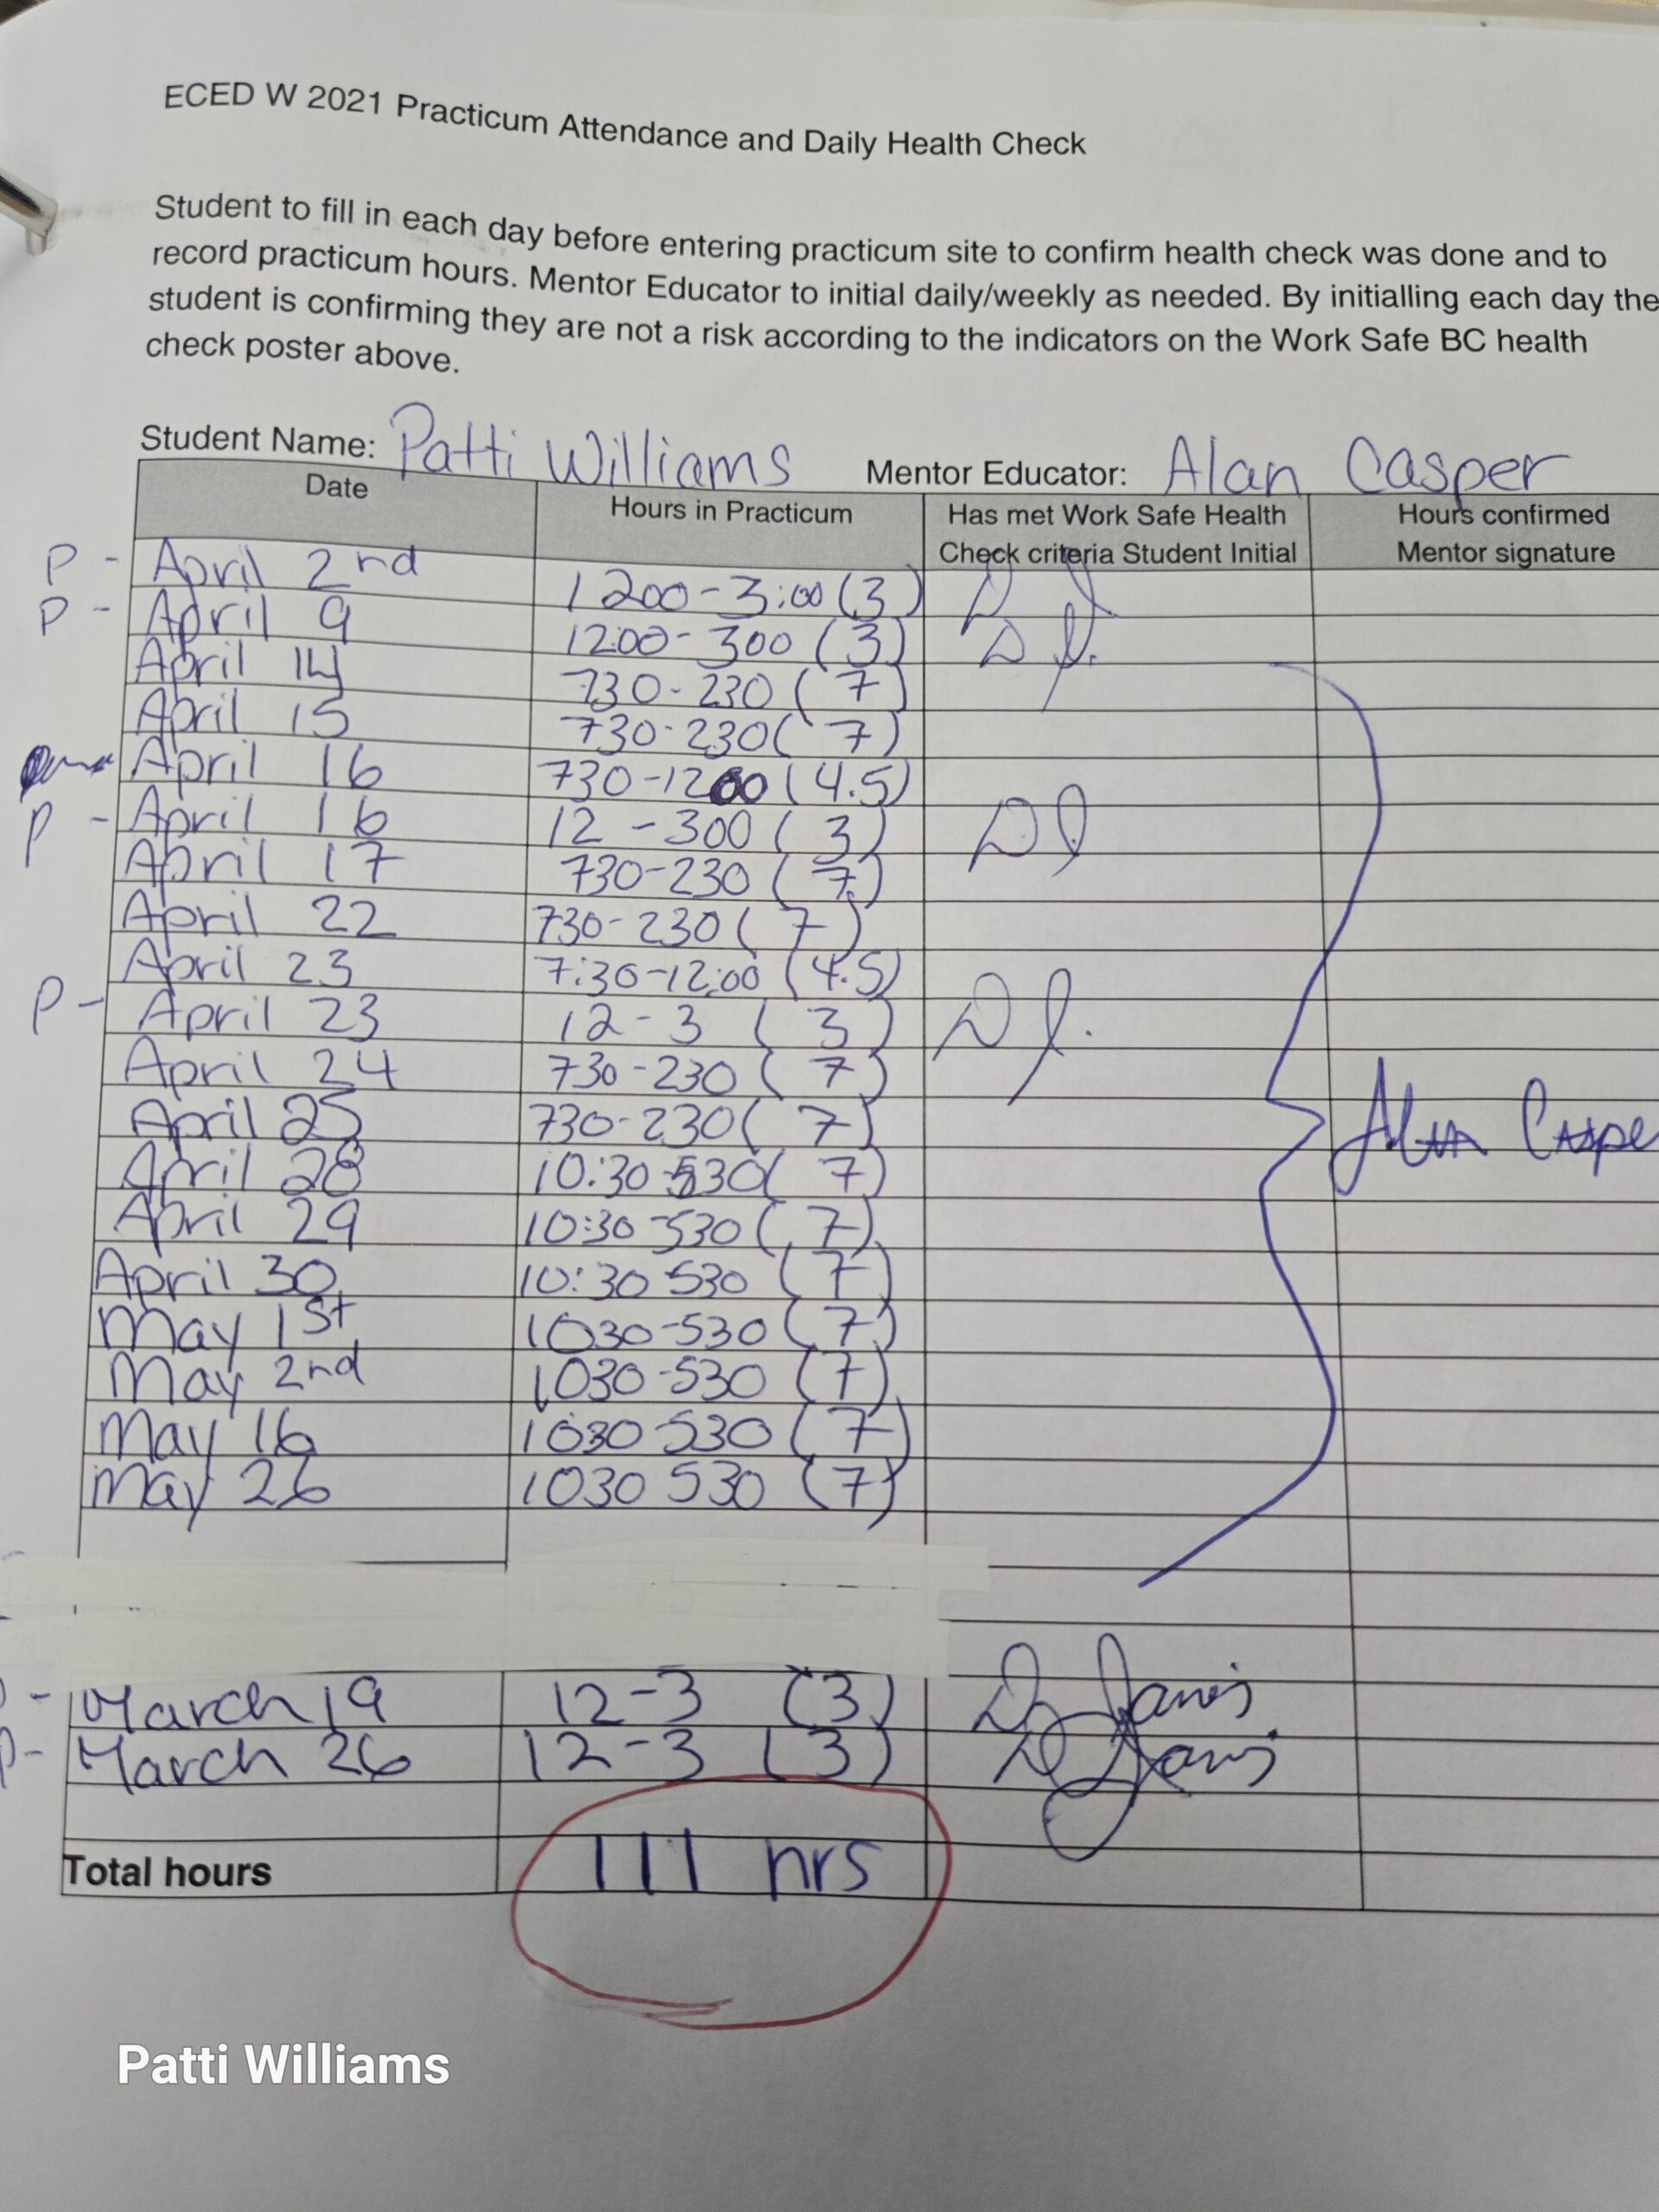 ECED W 2021 Practicum Attendance and Daily Health Check
Student to fill in each day before entering practicum site to confirm health check was done and to
record practicum hours. Mentor Educator to initial daily/weekly as needed. By initialling each day the
student is confirming they are not a risk according to the indicators on the Work Safe BC health
check poster above.
Student Name: Patti Williams Mentor Educator: Alan Casper
Date Hours in Practicum Has met Work Safe Health Check criteria Student Initial Hours confirmed Mentor signature
P - April 2nd 1200-3:00 (3)
P - April 9 12:00-300 (3)
April 14 730-230 (7)
April 15 730-230 (7)
April 16 730-1200 (4.5)
P - April 16 12-300 (3)
April 17 730-230 (7)
April 22 730-230 (7)
April 23 7:30-12:00 (4.5)
P - April 23 12-3 (3)
April 24 730-230 (7)
April 25 730-230 (7)
Alan Caspe
April 28 10:30-530 (7)
April 29 10:30-530 (7)
April 30 10:30 530 (7)
May 1st 1030-530 (7)
May 2nd 1030-530 (7)
May 16 1030-530 (7)
May 26 1030 530 (7)
- March 19 12-3 (3)
P - March 26 12-3 (3)
Total hours 111 hrs
Patti Williams